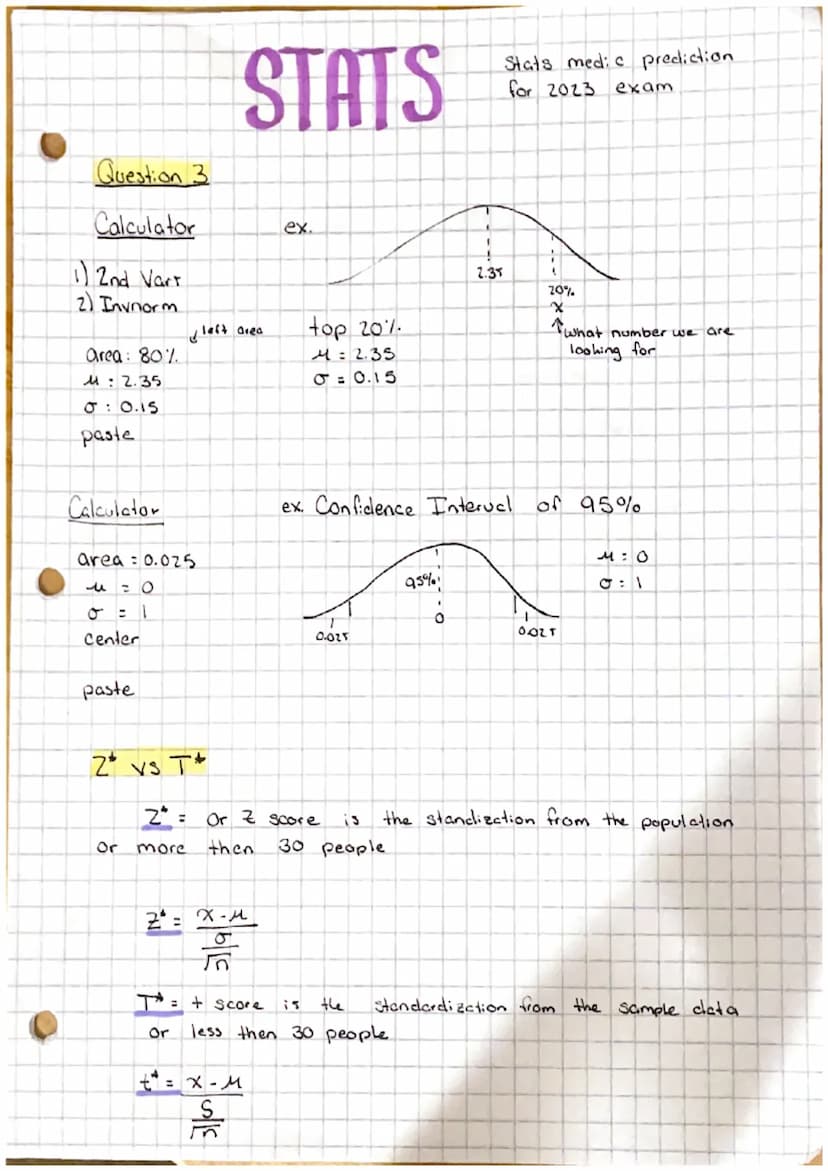 STATS
Stats medic prediction
for 2023 exam
Question 3
Calculator
1) 2nd Vars
2) Invnorm
left area
area: 80%
μ: 2.35
σ: 0.15
paste
ex.
2.35
20%
x
what number we are
looking for
top 20%
μ = 2.35
σ = 0.15
Calculator
area = 0.025
μ = 0
σ = 1
center
paste
ex. Confidence Interval of 95%
95%
0
0.025
0.025
μ: 0
σ: 1
Z* vs T*
Z* = or Z score is the standization from the population
or more then 30 people
Z* = x - μ
σ
√n
T* = t score is the standardization from the sample data
or less then 30 people
t* = x - μ
S
√n